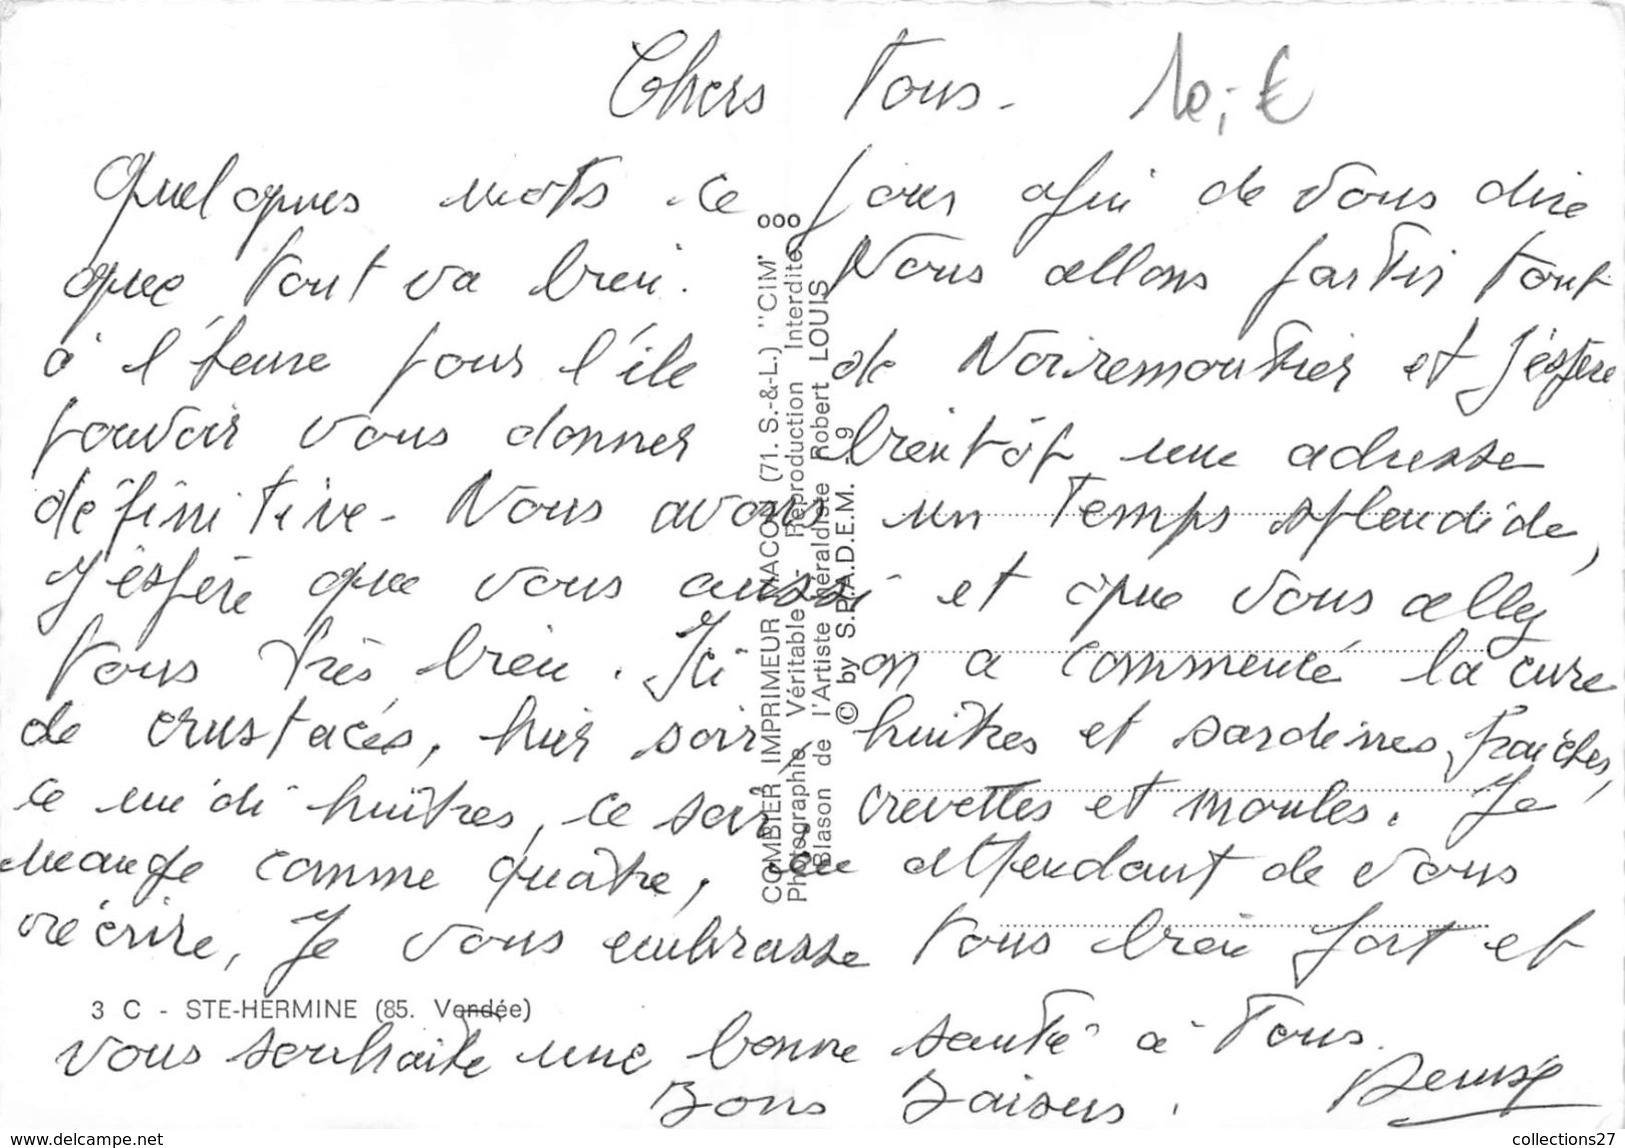 Chers Tous -
10,- €
Quelques mots ce jour afin de vous dire
que tout va bien. Nous allons partir tout
à l'heure pour l'île de Noiremoutier et j'éspère
pouvoir vous donner bientôt une adresse
définitive - Nous avons un temps splendide,
J'éspère que vous aussi et que vous allez
tous très bien. Ici on a commencé la cure
de crustacés, hier soir, huîtres et sardines fraîches,
ce midi huîtres, ce soir, crevettes et moules. Je
mange comme quatre, en attendant de vous
réécrire, Je vous embrasse tous bien fort et
3 C - STE-HERMINE (85. Vendée)
vous souhaite une bonne santé à Tous.
Bons Baisers.
Denise
COMBIER IMPRIMEUR MACON (71. S.-&-L.) "CIM"
Photographie Véritable - Reproduction Interdite
Blason de l'Artiste Héraldiste Robert LOUIS
© by S.P.A.D.E.M. - 9
https://www.delcampe.net
collections27